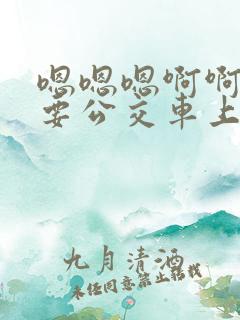 嗯嗯嗯啊啊
要公交車上
九月清酒
未经同意禁止转载